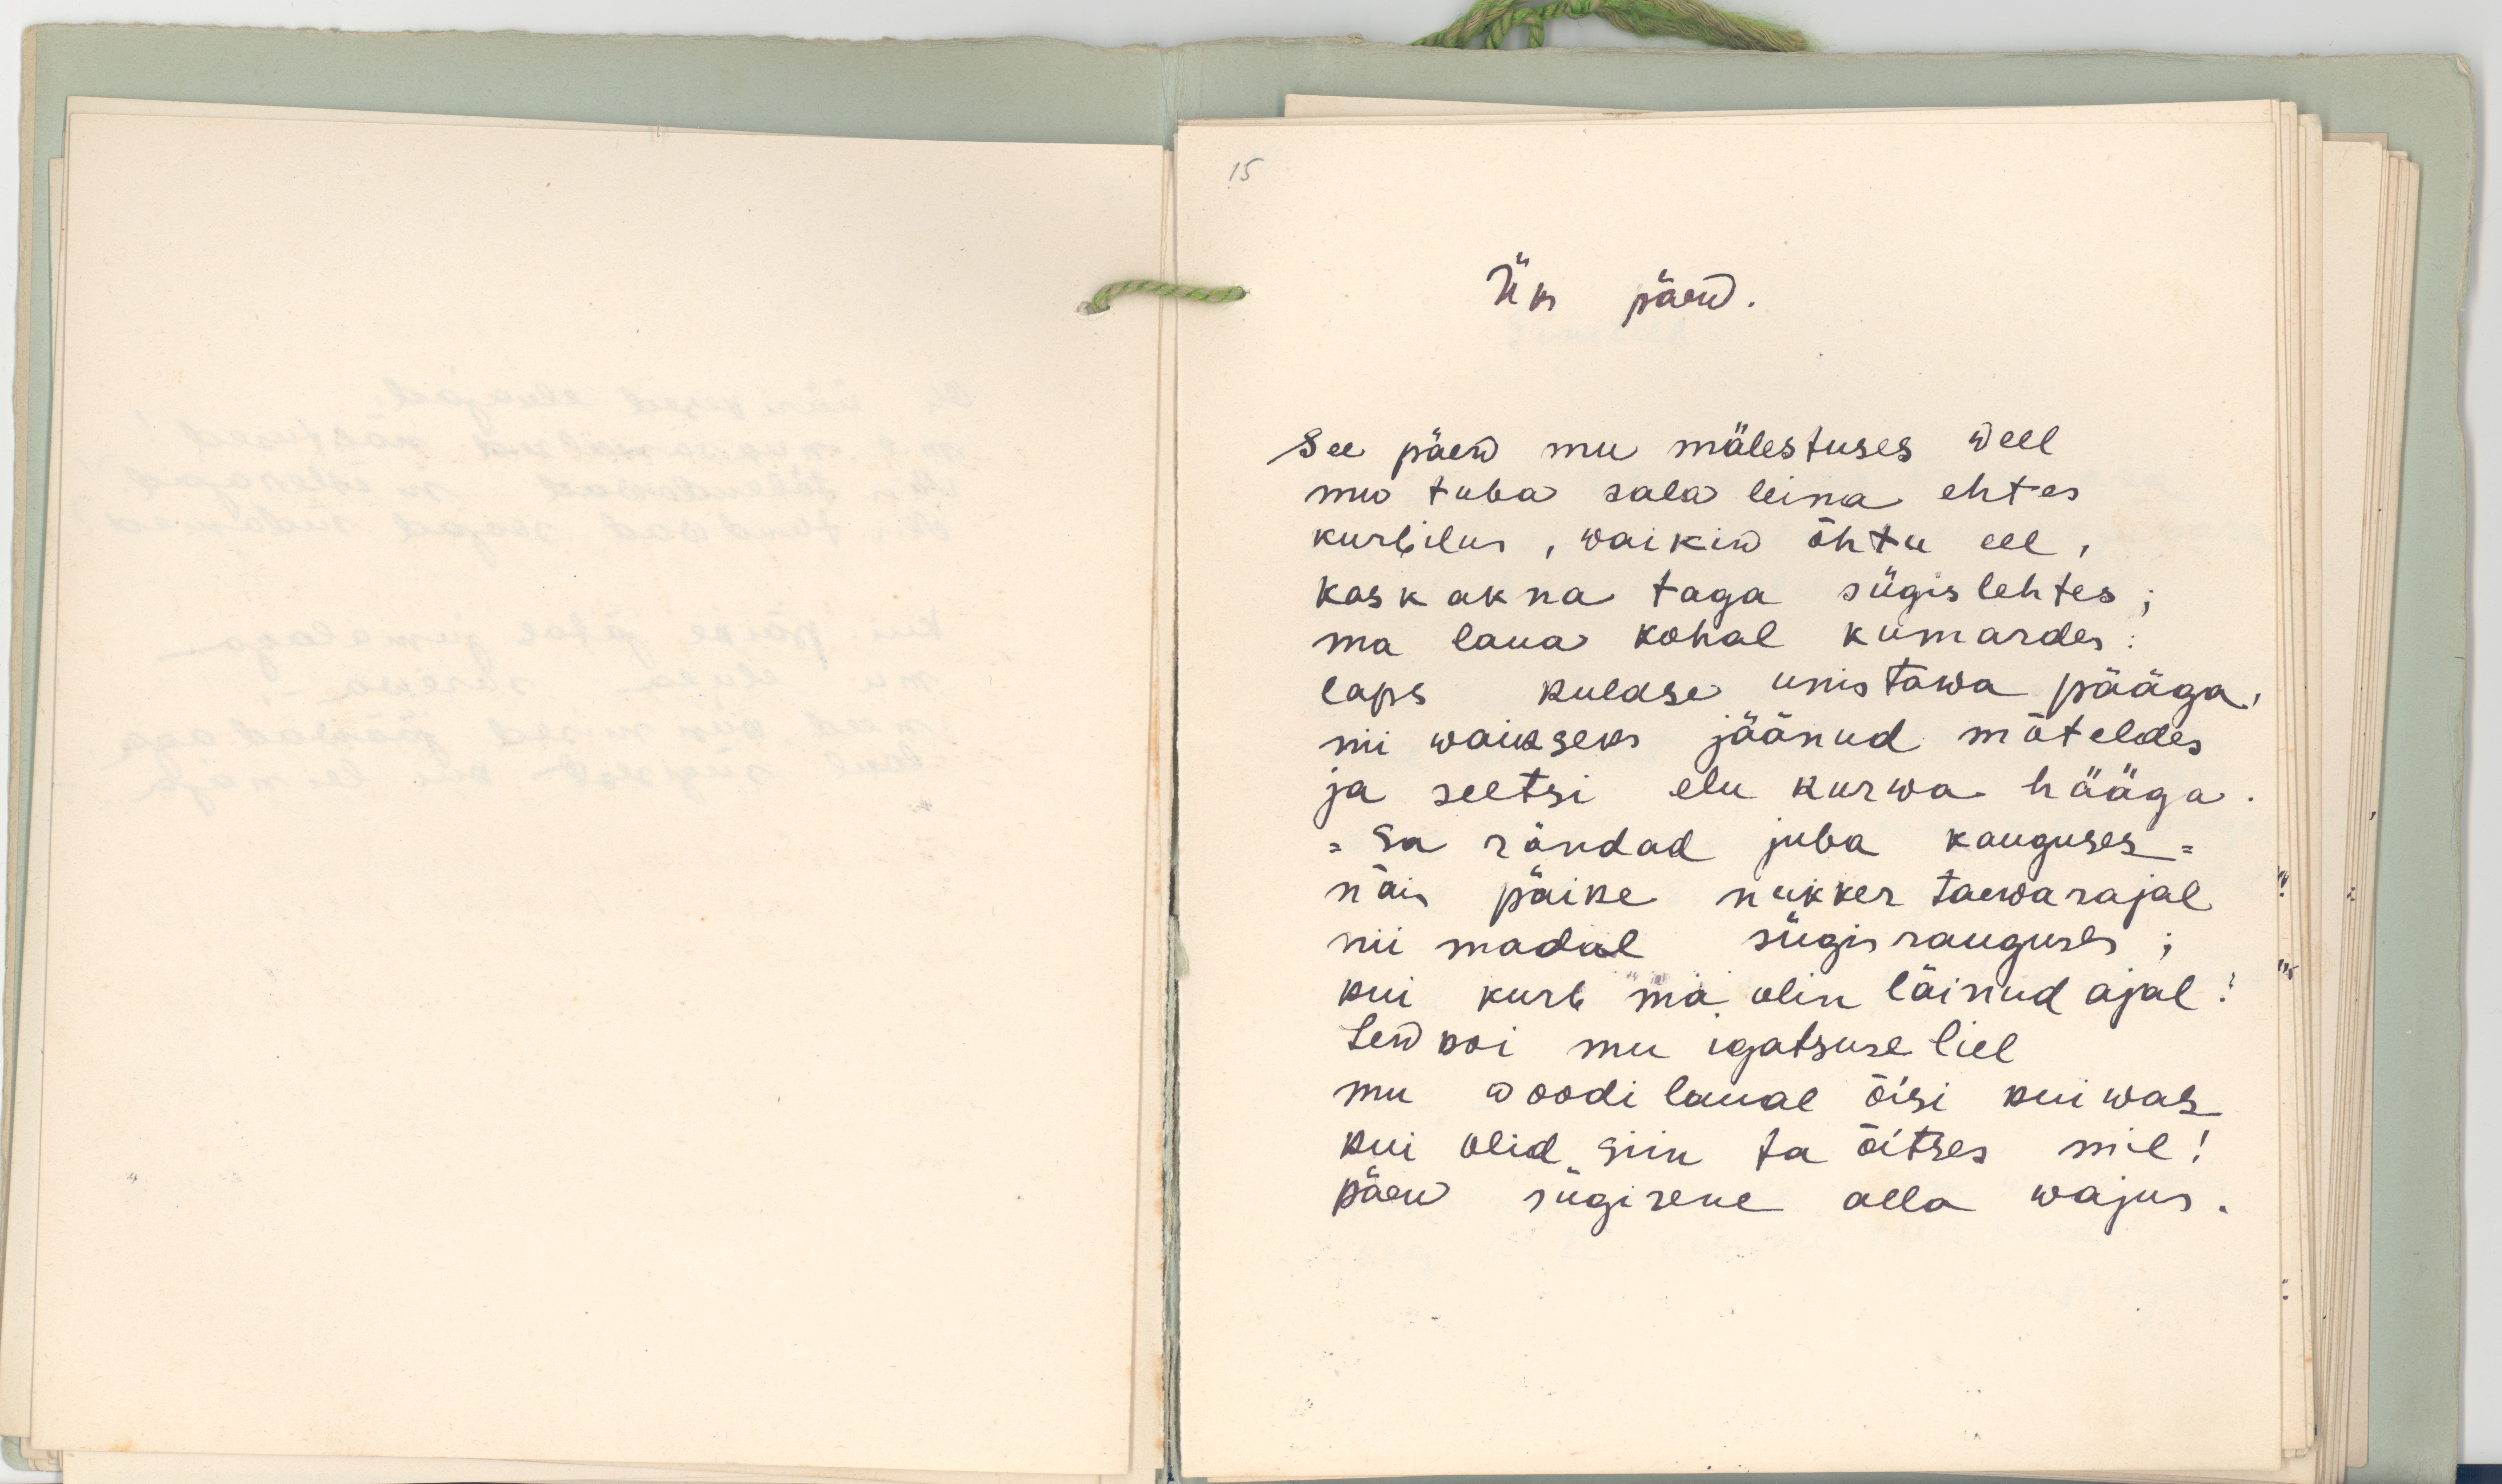 15
Üks päew.
See päew mu mälestuses weel
mu tuba sala leina ehtes
kurbilus, waikiw õhtu eel,
kask akna taga sügislehtes;
ma laua kohal kumardes:
laps kuldse unistawa pääga,
nii waikseks jäänud mõteldes
ja seltsi elu kurwa hääga.
= Sa rändad juba kauguses =
näis päike nukker taewarajal
nii madal sügisrauguses;
kui kurb ma olin läinud ajal!
Lewkoi mu igatsuse liel
mu woodi laual õisi kuiwas
kui olid siin ta õitses miil!
päew sügisene alla wajus.